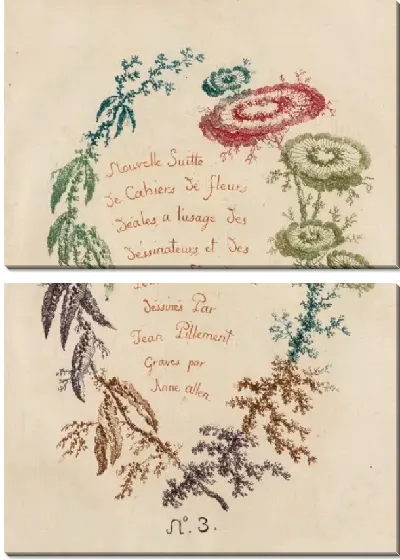 Nouvelle Suitte
de Cahiers de fleurs
idéales, a l'usage des
dessinateurs et des
dessinés Par
Jean Pillement
Gravés par
Anne allen
N.° 3.